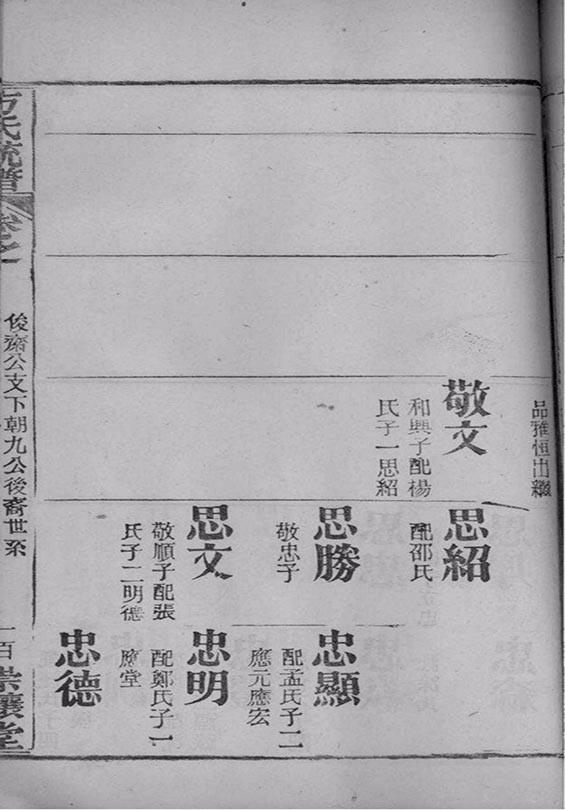 品雅恒出繼
敬文
和興子配楊
氏子一思紹
思紹
配邵氏
思勝
敬忠子
思文
敬順子配張
氏子二明德
忠顯
配孟氏子二
應元應宏
忠明
配鄭氏子一
應堂
忠德
方氏統譜
卷之一
俊齋公支下朝九公後裔世系
一百
崇讓堂